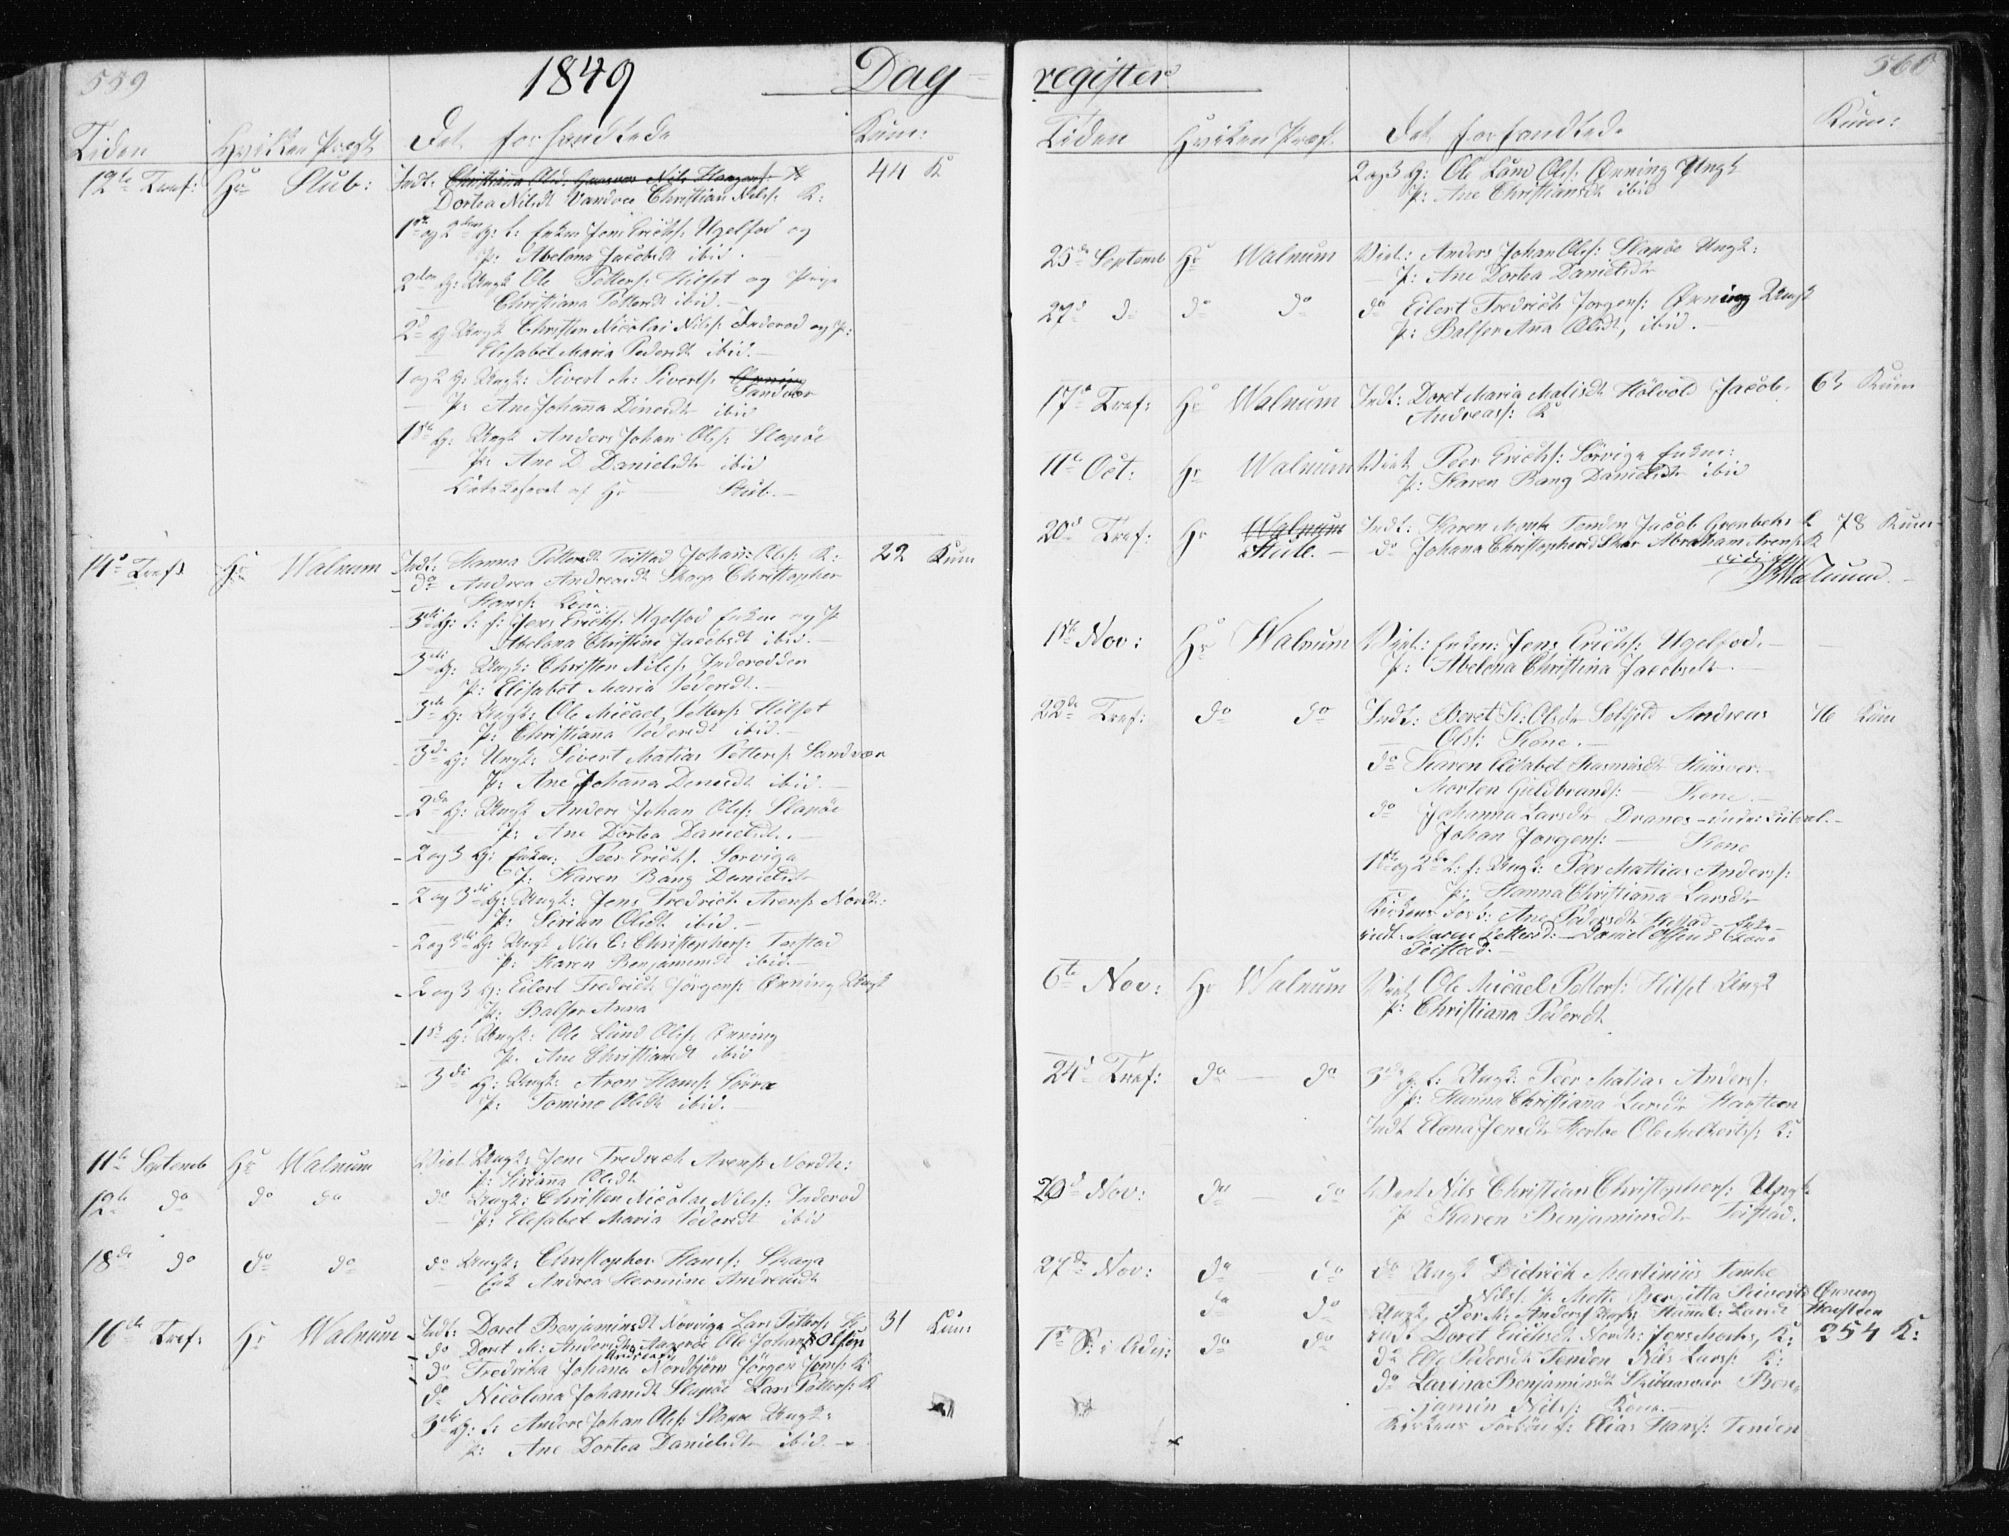 559
1849
Dag-
Tiden Hvilken Præst Det forhandlede Kum:
12te Tref: Hr Stub: Indt: 44 K
Dortea Nilsdt Vandvee Christian Nils: K:
1ste og 2den G: L: Enkem Jens Erichs: Ugelfod og
P: Abelona Jacobsdt ibid.
2den G: Ungk Ole Petters: Hilset og Pige
Christiana Pettersdt ibid.
2d G Ungk Christen Nicolai Nils: Inderod og P:
Elisabet Maria Pedersdt ibid.
1 og 2 G: Ungk: Sivert M: Siverts:
Sandvær
P: Ane Johanna Dinesdt ibid
1ste G: Ungk Anders Johan Ols: Slapøe
P: Ane D Danielsdt ibid
af Hr Stub.
14de Tref: Hr Walnum Indt: Hanna Pettersdt Teistad Johan Ols: K: 22 Kum
do Andrea Andreasdt Skaga Christopher
Hans:
3die G: L: f: Jens Erichs: Ugelfod Enkem og P
Abelona Christine Jacobsdt ibid.
3die G: Ungk: Christen Nils: Inderodden
P: Elisabet Maria Pedersdt.
3die G: Ungk: Ole Micael Petters: Hilset
P: Christiana Pedersdt ibid.
3die G: Ungk: Sivert Matias Petters: Sandvær
P: Ane Johanna Dinesdt ibid.
2den G: Ungk Anders Johan Ols: Slapøe
P: Ane Dortea Danielsdt.
2 og 3 G: Enkm: Peer Erichs: Sorviga
P: Karen Bang Danielsdt
2 og 3die G: Ungk: Jens Fredrich Arens: Nordt:
P: Sirian Olsdt ibid.
2 og 3die G: Ungk Nils C: Christophers: Teistad
P: Karen Benjaminsdt ibid.
2 og 3 G: Eilert Fredrich Jørgens: Ønning Ungk
P: Balser Anna
1ste G: Ungk: Ole Lund Ols: Ønning
P: Ane Christiansdt ibid
3die G: Ungk: Aron Hans: Sørra
P: Tomine Olsdt ibid.
11te Septemb Hr Walnum Viet Ungk: Jens Fredrich Arens: Nordt:
P: Sirianna Olsdt
12te do do do do Ungk: Christen Nicolai Nils: Inderod
P: Elisabet Maria Pedersdt ibid
18de do do do do Ungk: Christopher Hans: Skaga
Andrea Hermine Andreasdt
16de Tref: Hr Walnum Indt: Doret Benjaminsdt Norviga Lars Petters: K: 31 Kum:
do Doret M: Andersdt Ole Johan Olsen
do Fredrika Johana Nordbjørn Jørgen Jens: K:
do Nicolina Johansdt Slapøe Lars Petters: K
3die G: L: Anders Johan Ols: Slapøe Ungk:
P: Ane Dortea Danielsdt ibid.
register
560
Tiden Hvilken Præst Det forhandlede Kum:
2 og 3 G: Ole Lund Ols: Ønning Ungk
P: Ane Christiansdt ibid
25de Septemb Hr Walnum Viet: Anders Johan Ols: Slapøe Ungk:
P: Ane Dortea Danielsdt
27d do do do do Eilert Fredrich Jorgens: Ønning Ungk
P: Balser Ana Olsdt, ibid.
17de Tref: Hr Walnum Indt: Doret Maria Matisdt Holvold Jacob 63 Kum
Andreass: K
11te Oct: Hr Walnum Viet Peer Erichs: Sørviga Enkm:
P: Karen Bang Danielsdt ibid
20d Tref: Hr Walnum Indt: Karen Tenden Jacob Grønbeks K 78 Kum
Stub. do Johana Christophersd Skar Abraham Arens: K
Walnum
1ste Nov: Hr Walnum Viet: Enkm: Jens Erichs: Ugelfod.
P: Abelona Christina Jacobsdt.
22de Tref: do do Indt: Beret K: Olsdr Andreas 76 Kum
Ols: Kone.
do Karen Elisabet Rasmusdt Huusver.
Morten Guldbrands: Kone.
do Johanna Larsdtr Dranes
Johan Jorgens: Kone
1ste og 2den L: f: Ungk: Peer Mattias Anders:
P: Hanna Christianna Larsdtr
Kirkens Forb: Ane Pedersdt
Indt: Maren Pettersd: Daniel Olsens Kone
Teistad.
6te Nov: Hr Walnum Viet Ole Micael Petters: Hilset Ungk
P: Christiana Pedersdt
24d Tref: do do 3die G: L: Ungk: Peer Matias Anders:
P: Hanna Christianna Larsdr Hausteen
Indt Elena Jensdtr Hertoe Ole Melkerts: K:
20d Nov: do do Viet Nils Christian Christophers: Ungk
P Karen Benjaminsdtr Teistad.
27de Nov: do do do Ungk Dietrich Martinius
Nils: P: Mette Bergitta Sivertsd Ønning
do do Ungk, Per M: Anders
1ste S: i Adv: do do Indt Doret Erichsdt: Nordt: Jens Mort: K: 254 K:
do Else Pedersdt Tenden Nils Lars: K:
do Lavina Benjaminsdt Ben-
jamin Nils: Kone.
Kirkens Forbøn f: Elias Hans: Tenden